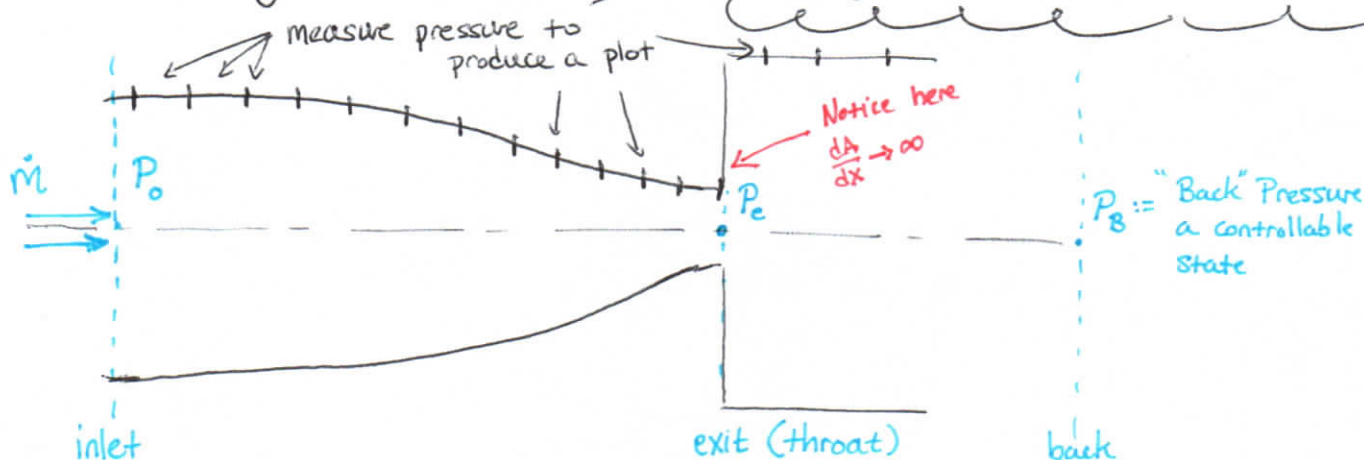 measure pressure to
produce a plot
Notice here
dA/dx → ∞
ṁ
P₀
Pₑ
P_B := "Back" Pressure
a controllable
state
inlet
exit (throat)
back